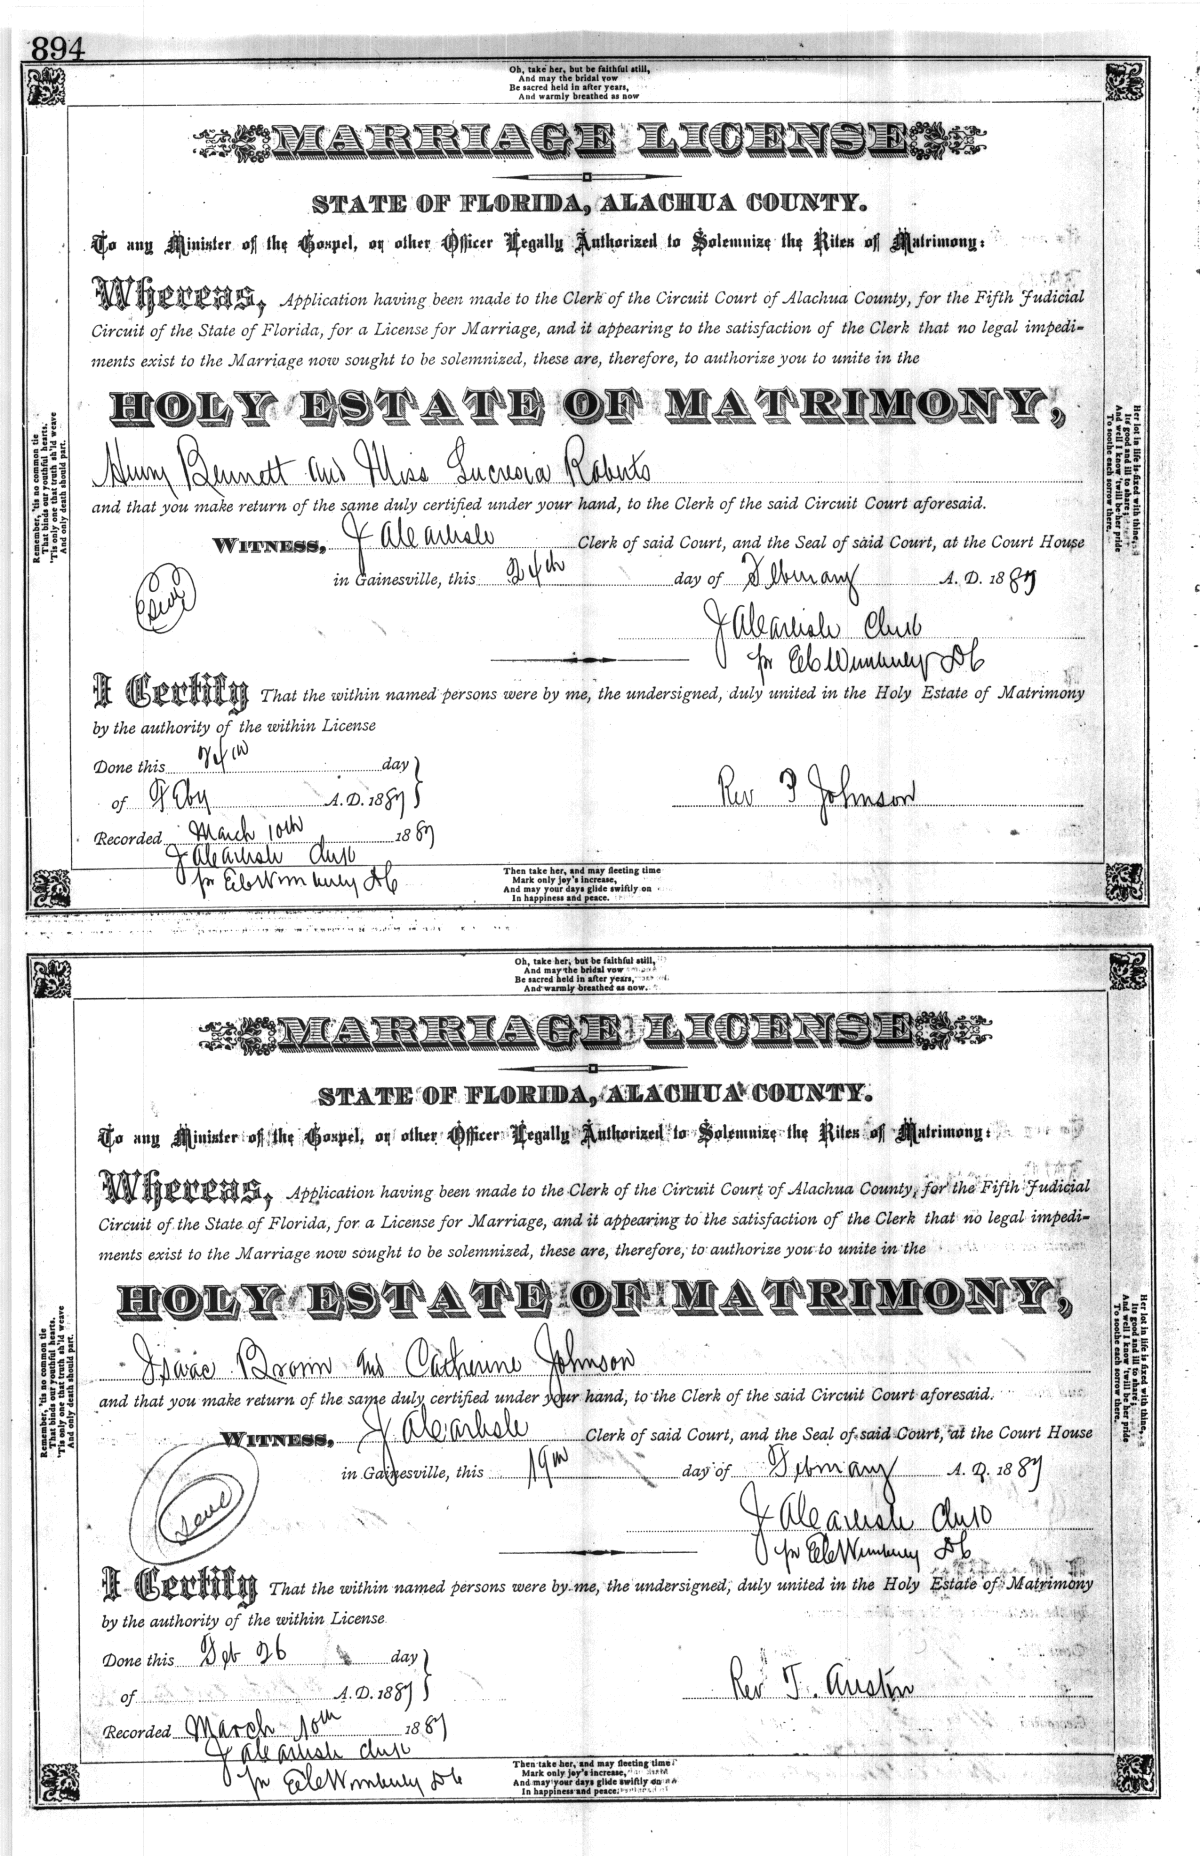 894
Oh, take her, but be faithful still,
And may the bridal vow
Be sacred held in after years,
And warmly breathed as now
MARRIAGE LICENSE
STATE OF FLORIDA, ALACHUA COUNTY.
To any Minister of the Gospel, or other Officer Legally Authorized to Solemnize the Rites of Matrimony:
Whereas, Application having been made to the Clerk of the Circuit Court of Alachua County, for the Fifth Judicial
Circuit of the State of Florida, for a License for Marriage, and it appearing to the satisfaction of the Clerk that no legal impedi-
ments exist to the Marriage now sought to be solemnized, these are, therefore, to authorize you to unite in the
HOLY ESTATE OF MATRIMONY,
Henry Bennett and Miss Lucresia Roberts
and that you make return of the same duly certified under your hand, to the Clerk of the said Circuit Court aforesaid.
WITNESS, J A Carlisle Clerk of said Court, and the Seal of said Court, at the Court House
in Gainesville, this 24th day of February A. D. 1887
J A Carlisle Clerk
pr DC
I Certify That the within named persons were by me, the undersigned, duly united in the Holy Estate of Matrimony
by the authority of the within License
Done this 24th day
of Feby A.D. 1887
Rev P Johnson
Recorded March 10th 1887
J A Carlisle Clerk
pr DC
Remember, 'tis no common tie
That binds our youthful hearts,
'Tis only one that truth sh'ld weave
And only death should part.
Her lot in life is fixed with thine,
Its good and ill to share;
And well I know 'twill be her pride
To soothe each sorrow there.
Then take her, and may fleeting time
Mark only joy's increase,
And may your days glide swiftly on
In happiness and peace.
Oh, take her, but be faithful still,
And may the bridal vow
Be sacred held in after years,
And warmly breathed as now.
MARRIAGE LICENSE
STATE OF FLORIDA, ALACHUA COUNTY.
To any Minister of the Gospel, or other Officer Legally Authorized to Solemnize the Rites of Matrimony:
Whereas, Application having been made to the Clerk of the Circuit Court of Alachua County, for the Fifth Judicial
Circuit of the State of Florida, for a License for Marriage, and it appearing to the satisfaction of the Clerk that no legal impedi-
ments exist to the Marriage now sought to be solemnized, these are, therefore, to authorize you to unite in the
HOLY ESTATE OF MATRIMONY,
Isaac Brown and Catherine Johnson
and that you make return of the same duly certified under your hand, to the Clerk of the said Circuit Court aforesaid.
WITNESS, J A Carlisle Clerk of said Court, and the Seal of said Court, at the Court House
in Gainesville, this 19th day of February A. D. 1887
J A Carlisle Clerk
pr DC
I Certify That the within named persons were by me, the undersigned, duly united in the Holy Estate of Matrimony
by the authority of the within License
Done this Feb 26 day
of A.D. 1887
Rev T. Austin
Recorded March 10th 1887
J A Carlisle Clerk
pr DC
Remember, 'tis no common tie
That binds our youthful hearts.
'Tis only one that truth sh'ld weave
And only death should part.
Her lot in life is fixed with thine,
Its good and ill to share;
And well I know 'twill be her pride
To soothe each sorrow there.
Then take her, and may fleeting time
Mark only joy's increase,
And may your days glide swiftly on
In happiness and peace.